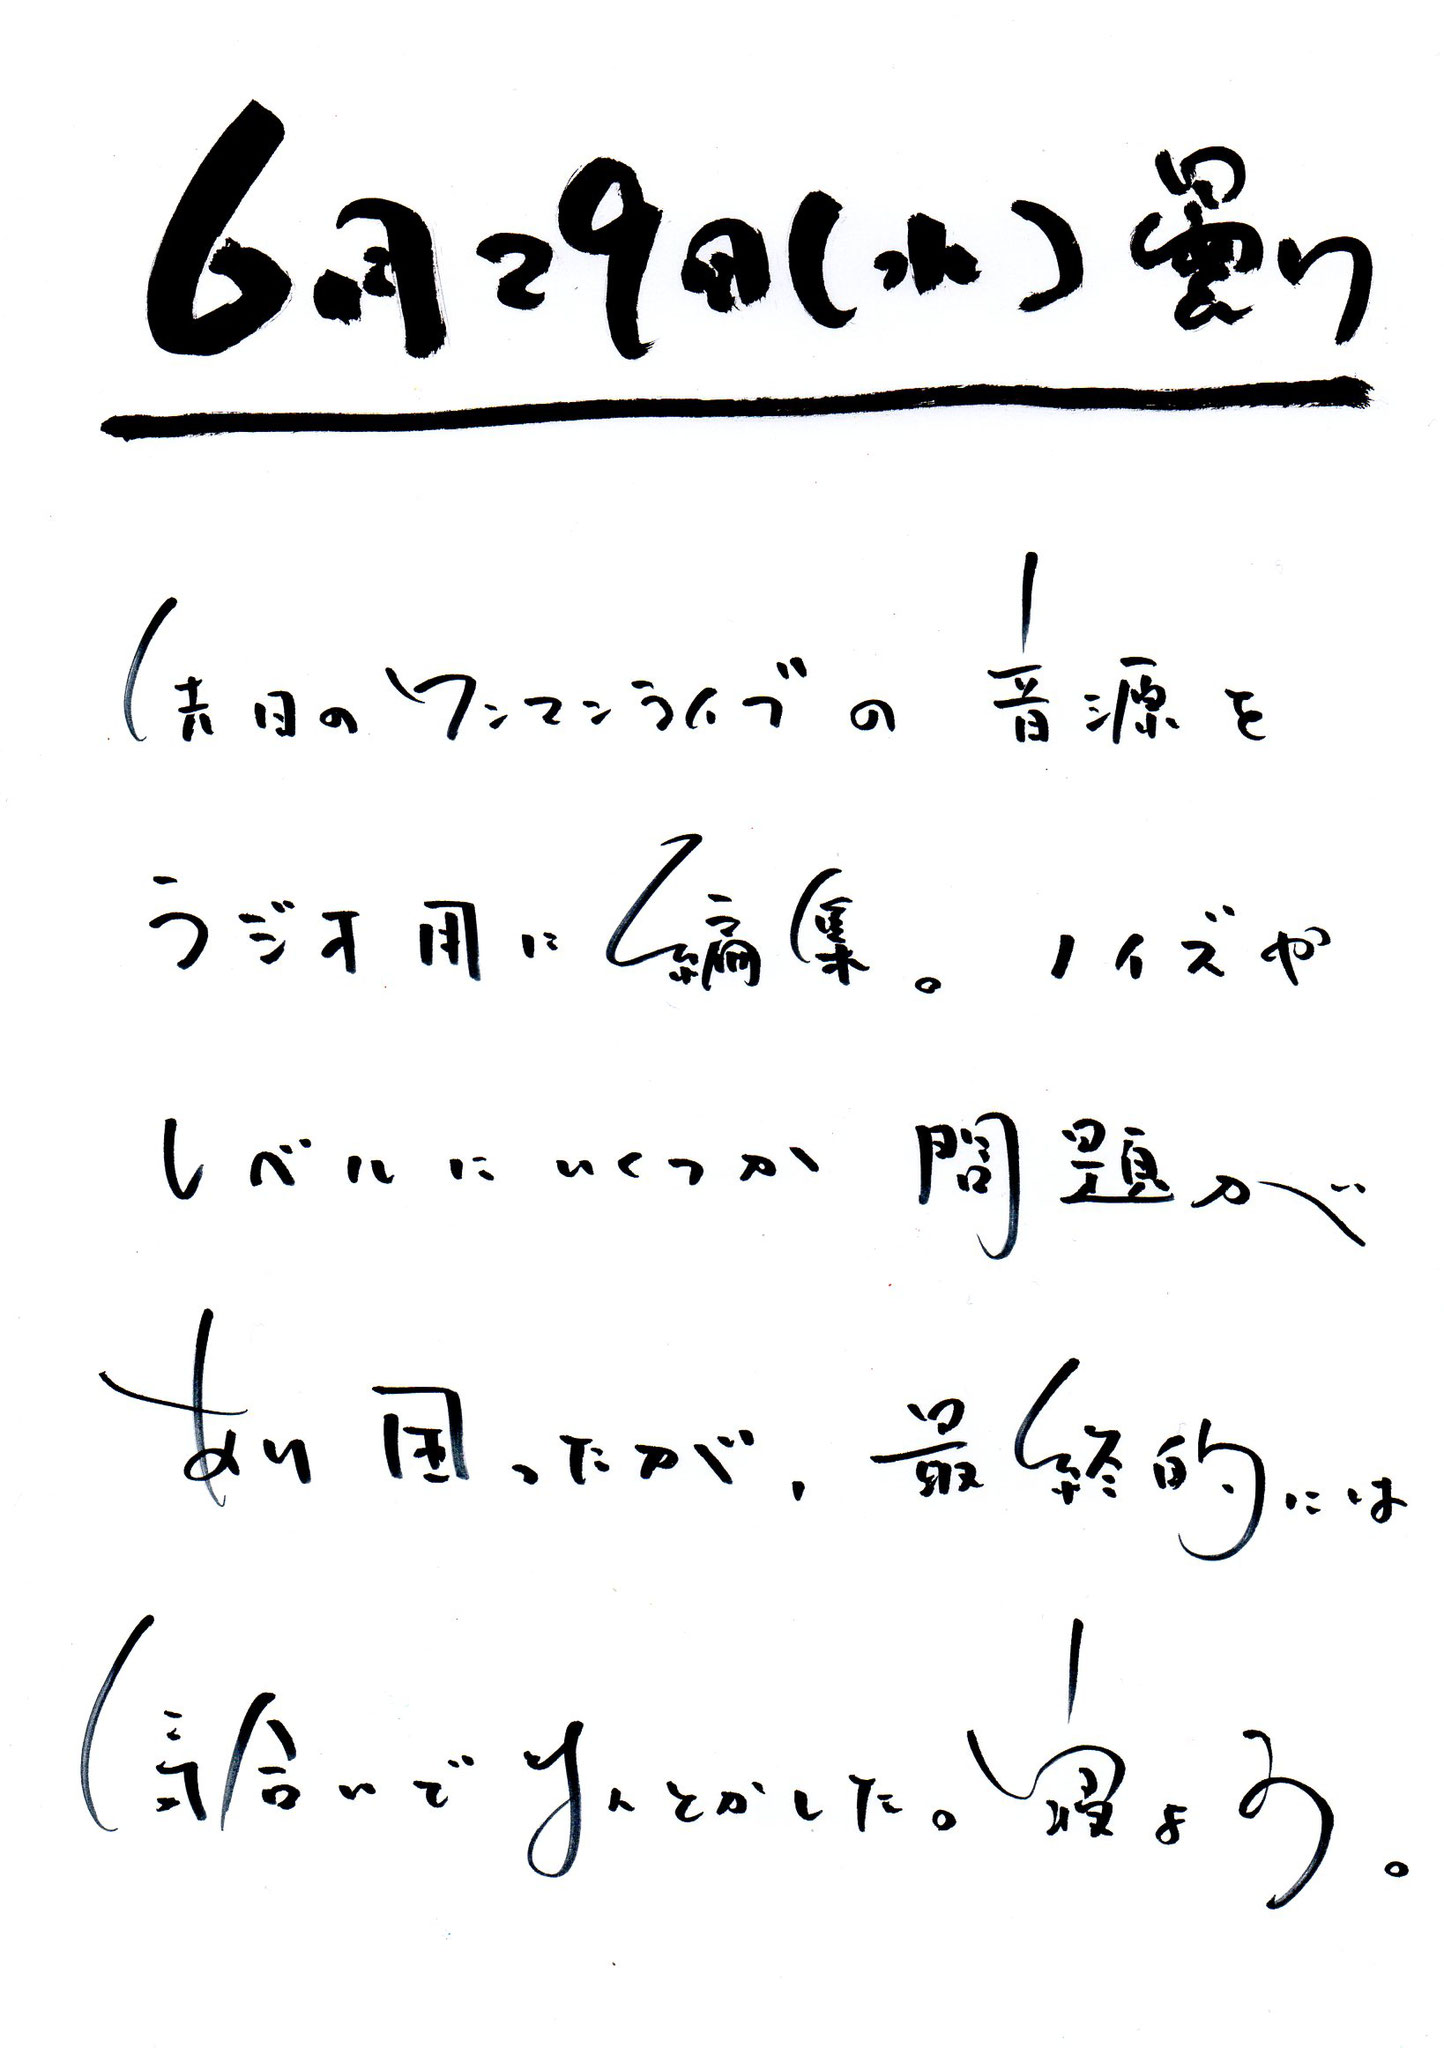 6月29日(水)曇り
先日のワンマンライブの音源を
ラジオ用に編集。ノイズや
レベルにいくつか問題が
あり困ったが、最終的には
気合いでなんとかした。寝よう。